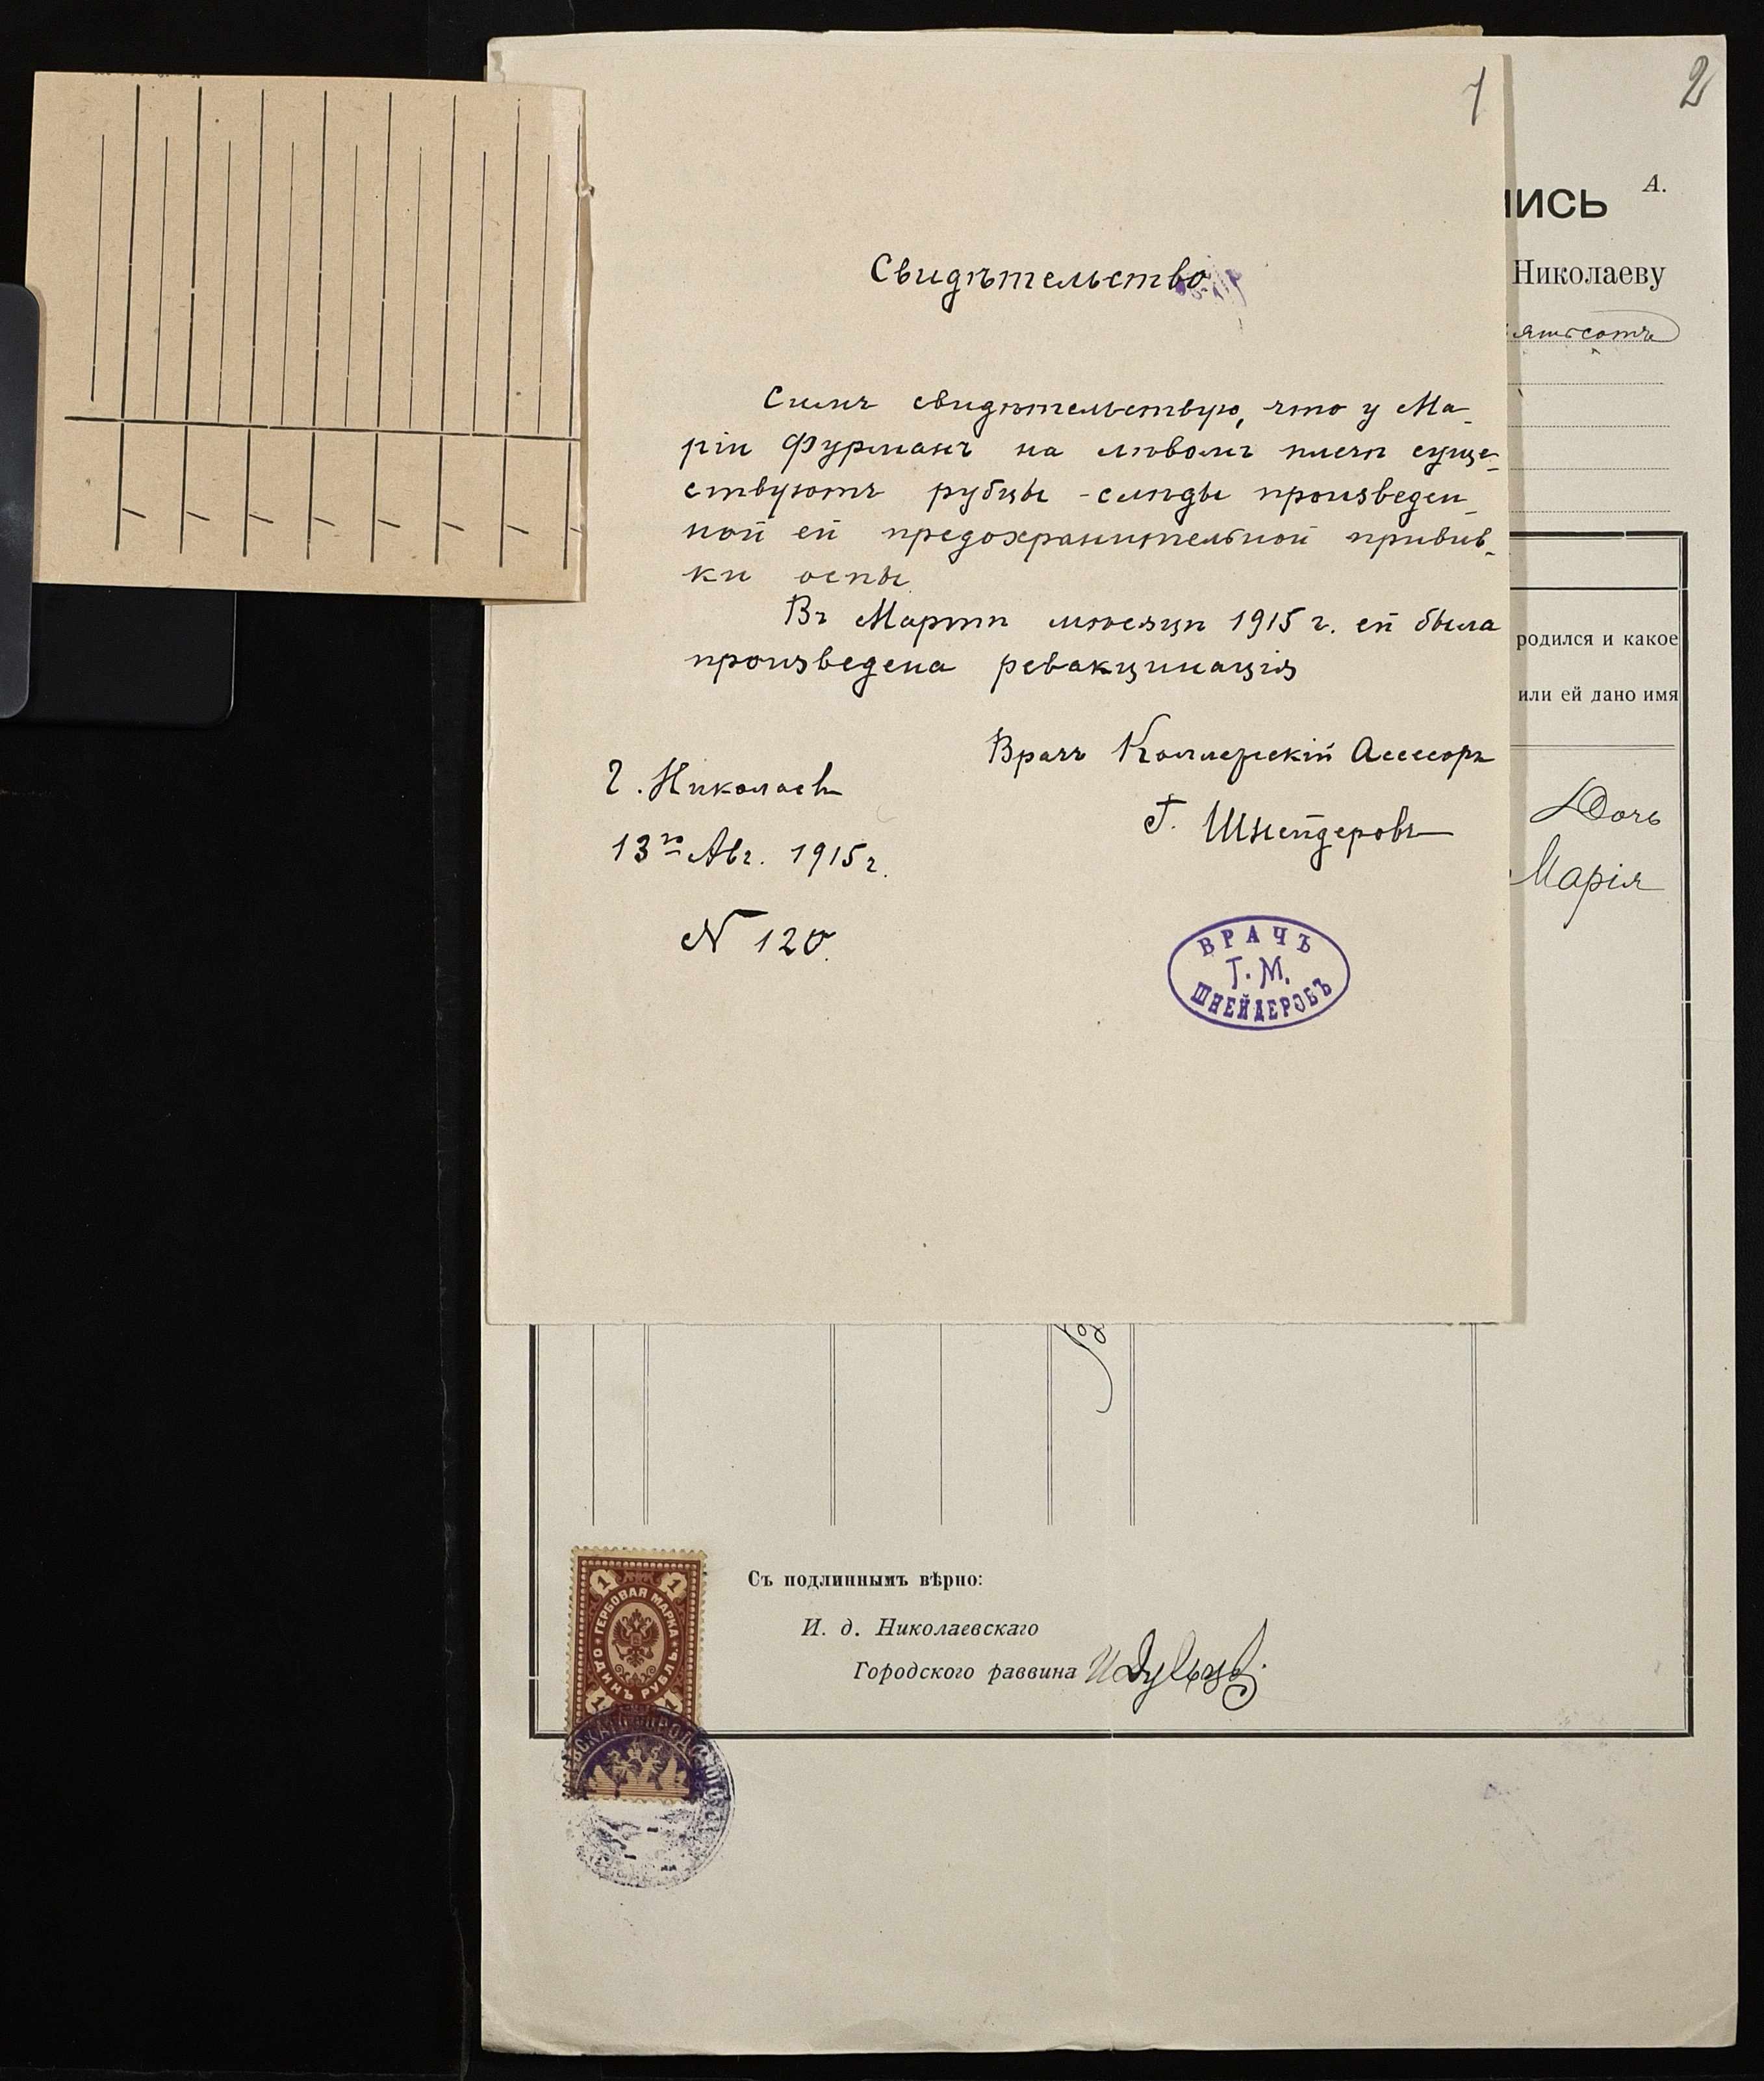 1
2
А.
ИСЬ
Николаеву
ятьсотъ
Свидѣтельство
Симъ свидѣтельствую, что у Ма-
ріи Фурманъ на лѣвомъ плечѣ суще-
ствуютъ рубцы - слѣды произведен-
ной ей предохранительной привив-
ки оспы
Въ Мартѣ мѣсяцѣ 1915 г. ей была
произведена ревакцинація
Врачъ Коллежскій Асессоръ
Г. Шнейдеровъ
Г. Николаевъ
13го Авг. 1915 г.
N 120.
ВРАЧЪ
Г. М.
ШНЕЙДЕРОВЪ
родился и какое
или ей дано имя
Дочь
Марія
1 1
ГЕРБОВАЯ МАРКА
ОДИНЪ РУБЛЬ
1 1
Съ подлиннымъ вѣрно:
И. д. Николаевскаго
Городского раввина